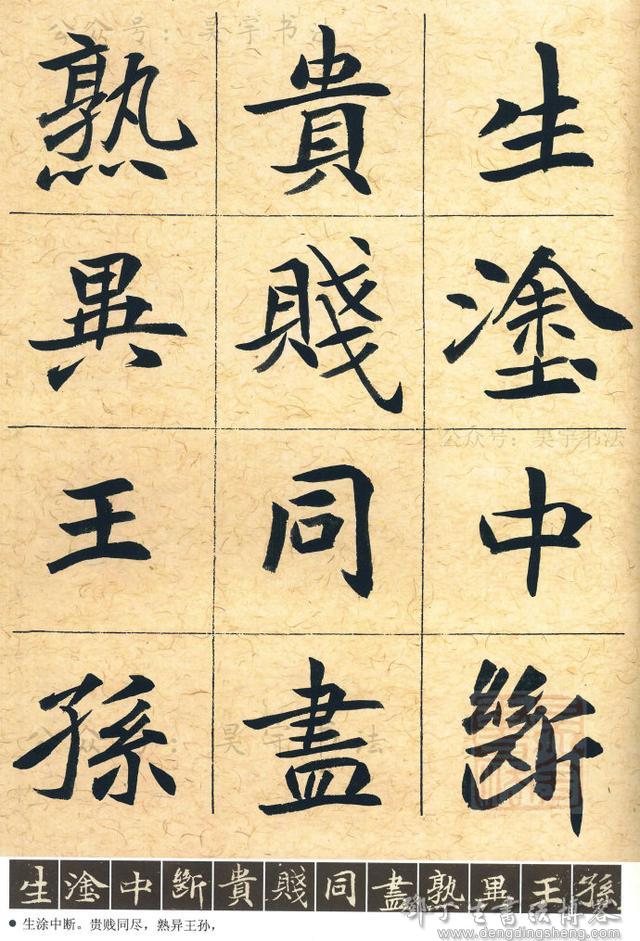 公众号：吴宇书法
生塗中斷
貴賤同盡
熟異王孫
公众号：吴宇书法
公众号：吴宇书法
生塗中斷貴賤同盡熟異王孫
● 生涂中断。贵贱同尽，熟异王孙，
邓丁生書法博客
www.dengdingsheng.com